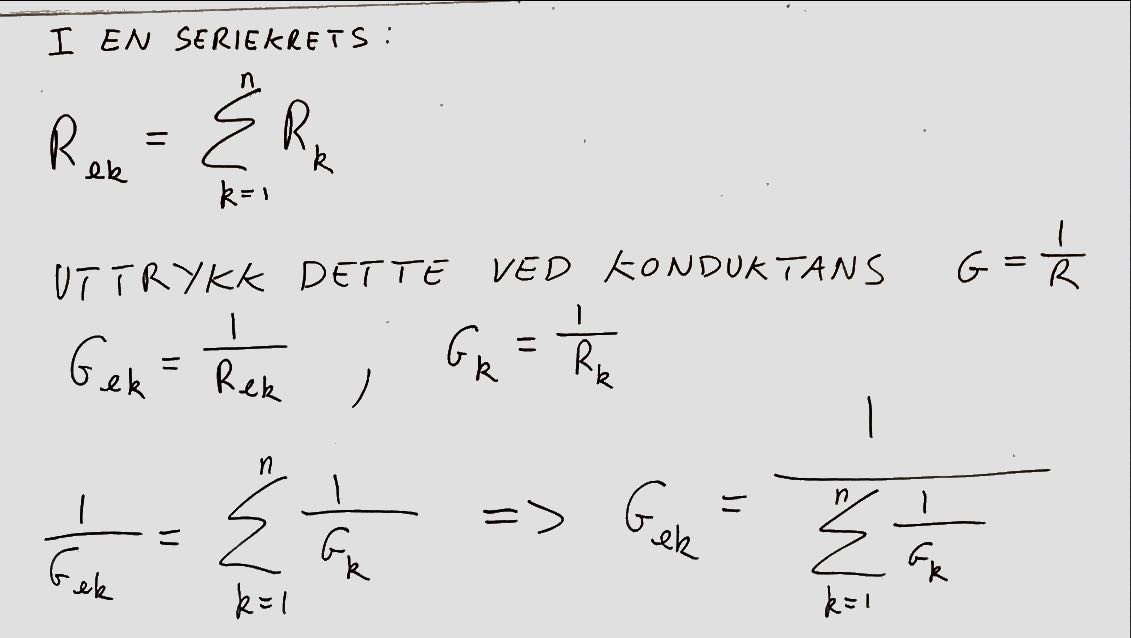 I EN SERIEKRETS:
R_ek = ∑_{k=1}^{n} R_k
UTTRYKK DETTE VED KONDUKTANS G = 1/R
G_ek = 1/R_ek , G_k = 1/R_k
1/G_ek = ∑_{k=1}^{n} 1/G_k => G_ek = 1/(∑_{k=1}^{n} 1/G_k)